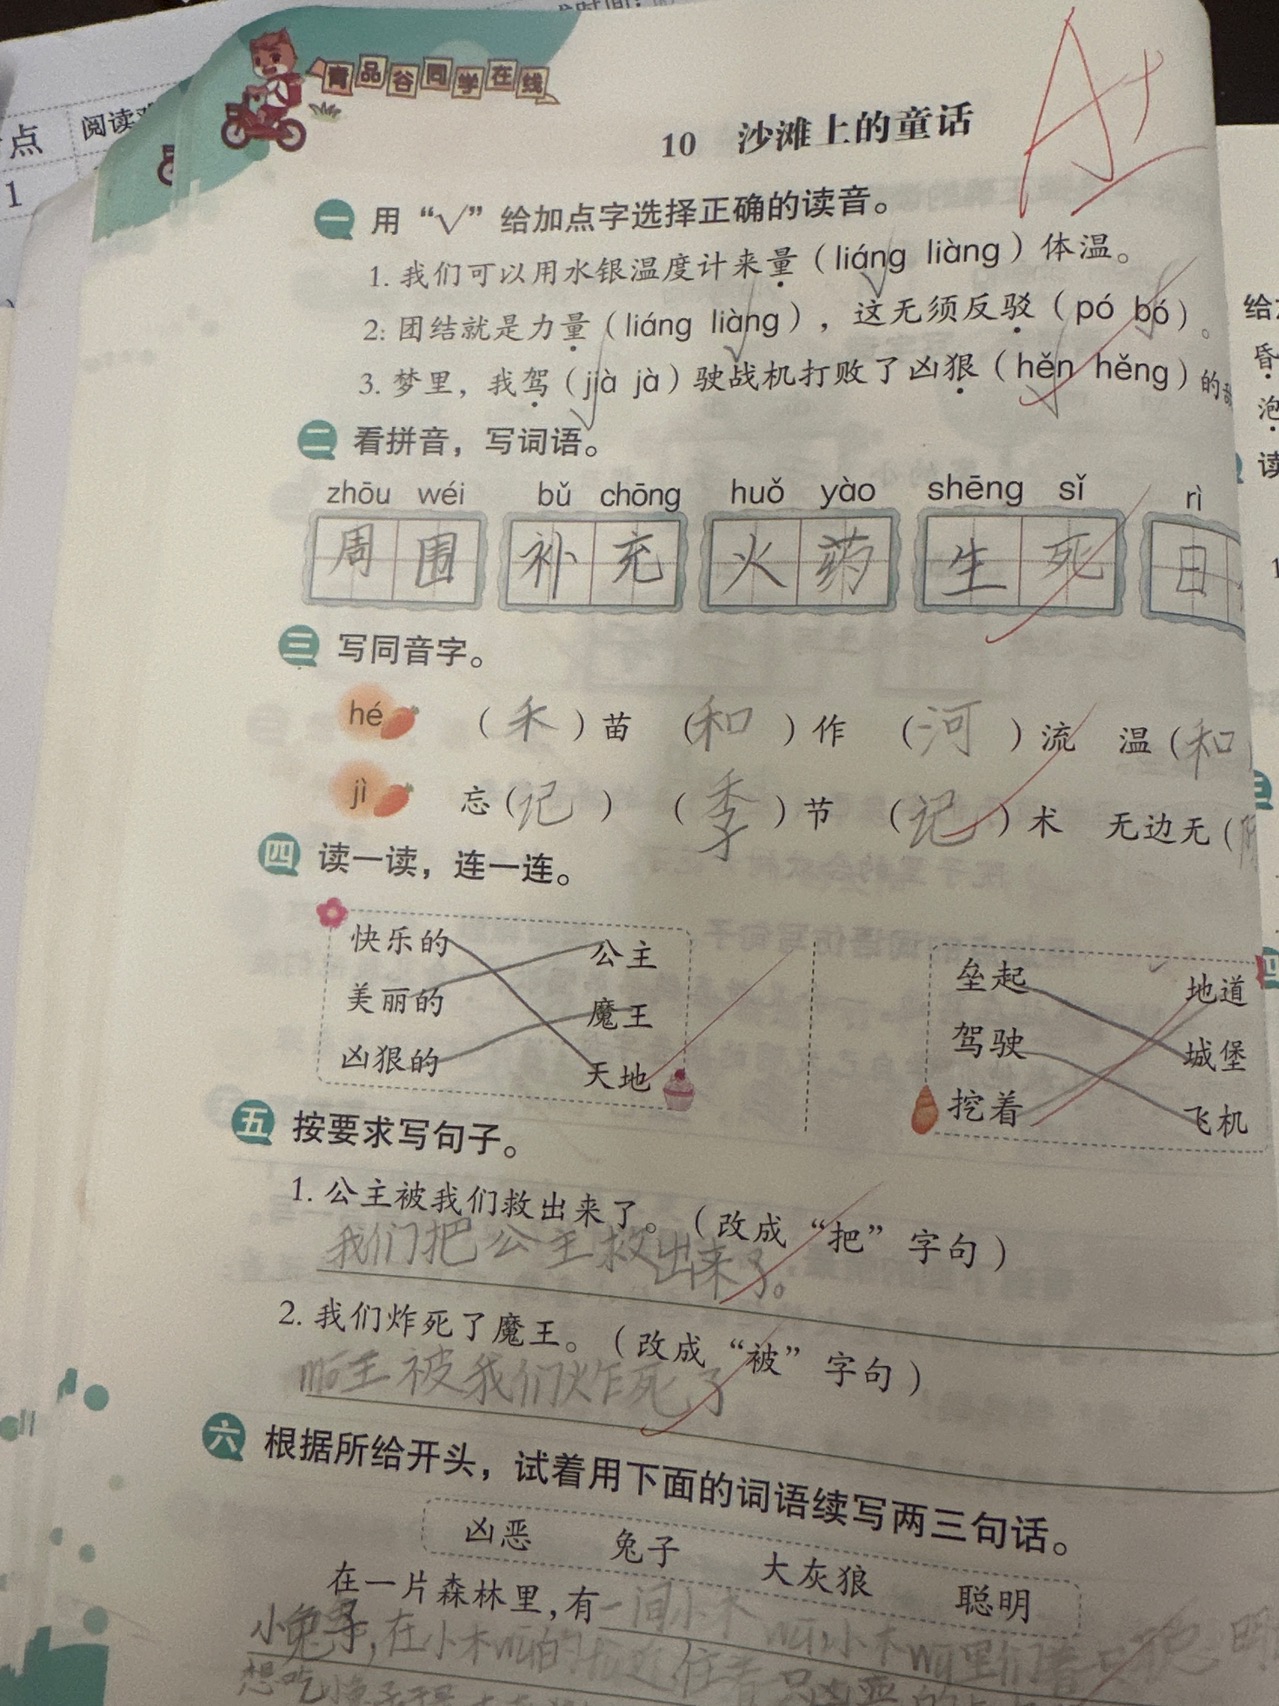 点 阅读
1
青品谷同学在线
A+
10 沙滩上的童话
一 用“√”给加点字选择正确的读音。
1. 我们可以用水银温度计来量（liáng liàng）体温。
2. 团结就是力量（liáng liàng），这无须反驳（pó bó）。
3. 梦里，我驾（jià jà）驶战机打败了凶狠（hěn hěng）的
二 看拼音，写词语。
zhōu wéi bǔ chōng huǒ yào shēng sǐ rì
周围 补充 火药 生死 日
三 写同音字。
hé （禾）苗 （和）作 （河）流 温（和
jì 忘（记） （季）节 （记）术 无边无（
四 读一读，连一连。
快乐的 公主 垒起 地道
美丽的 魔王 驾驶 城堡
凶狠的 天地 挖着 飞机
五 按要求写句子。
1. 公主被我们救出来了。（改成“把”字句）
我们把公主救出来了。
2. 我们炸死了魔王。（改成“被”字句）
mó王被我们炸死了
六 根据所给开头，试着用下面的词语续写两三句话。
凶恶 兔子 大灰狼 聪明
在一片森林里，有一间小木
小兔子，在小木wū的fù近住着只凶恶的
想吃
给
昏
泡
读